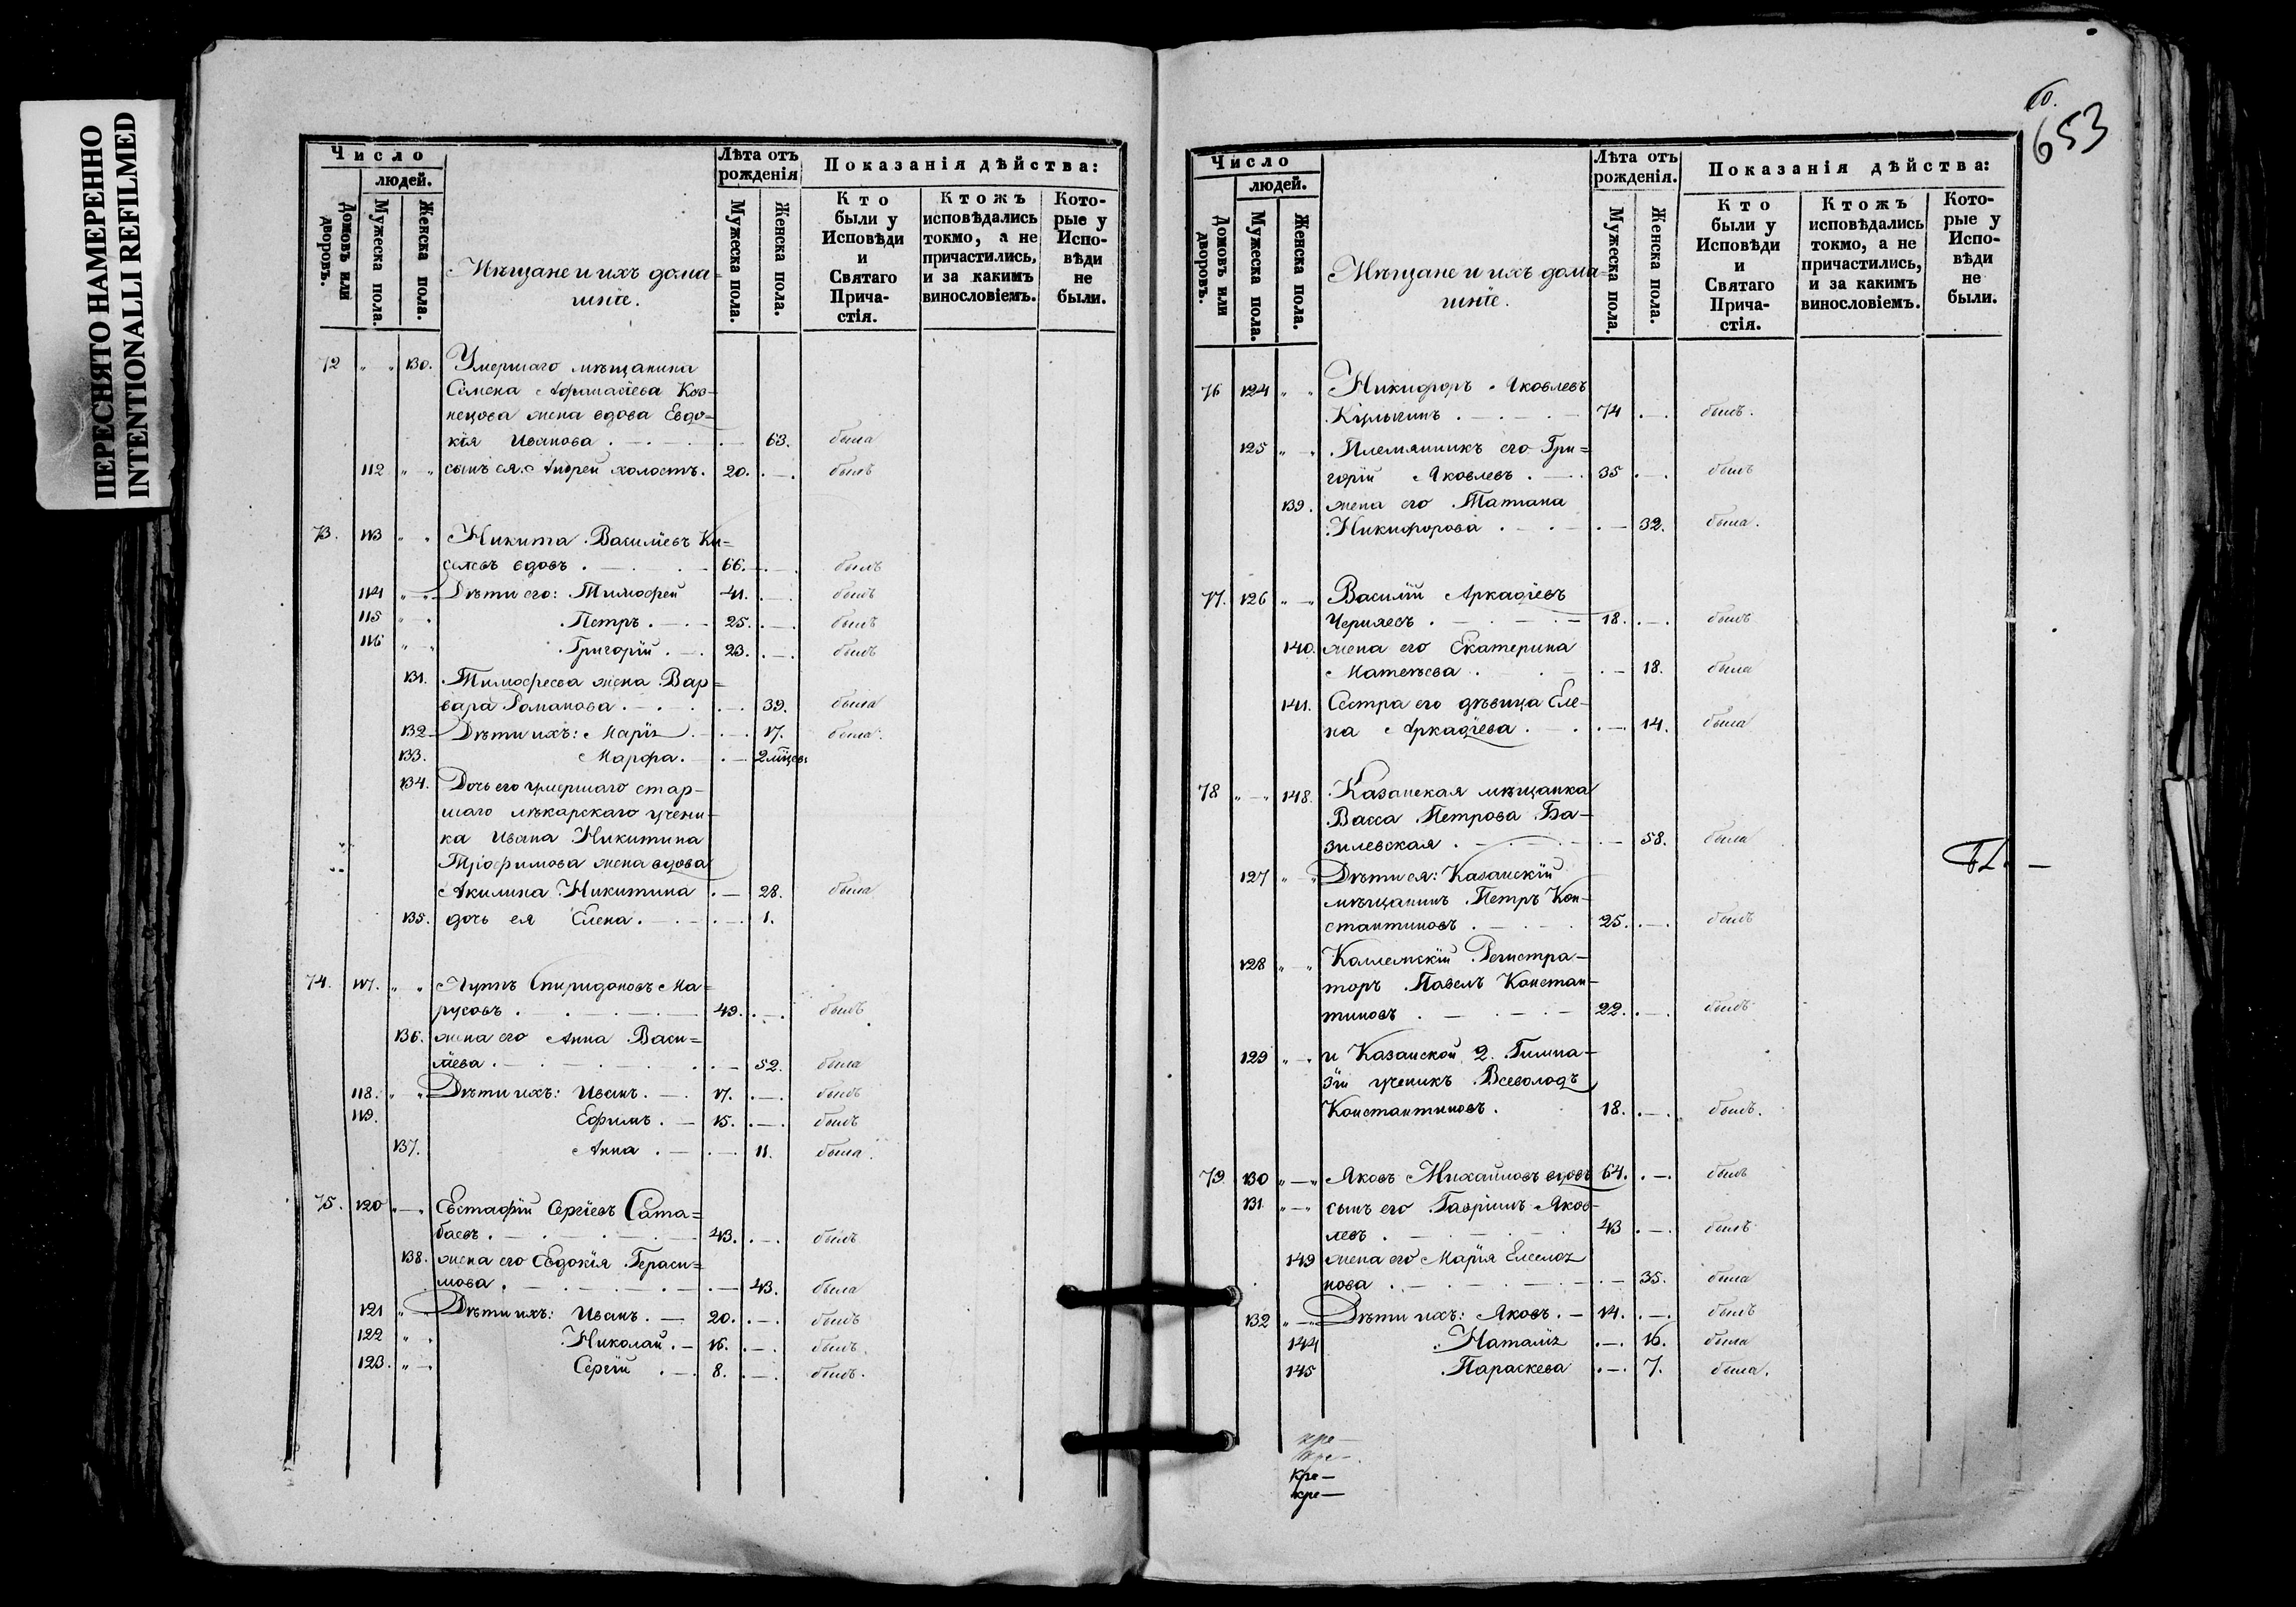 ПЕРЕСНЯТО НАМЕРЕННО
INTENTIONALLI REFILMED
Число
людей.
Домовъ или дворовъ.
Мужеска пола.
Женска пола.
Мѣщане и ихъ дома=
шніе.
Лѣта отъ
рожденія
Мужеска пола.
Женска пола.
Показанія дѣйства:
Кто
были у
Исповѣди
и
Святаго
Прича-
стія.
Ктожъ
исповѣдались
токмо, а не
причастились,
и за какимъ
винословіемъ.
Кото-
рые у
Испо-
вѣди
не
были.
72 " " 130. Умершаго мѣщанина
Семена Афанасіева Куз-
нецова жена вдова Евдо-
кія Иванова . — . — . — 63. была
112 " " сынъ ея: Андрей холостъ. 20. . — . былъ
73. 113 " " Никита Василіевъ Ки=
селевъ вдовъ . — . — 66. — . былъ
114 " — " Дѣти его: Тимофей 41. . — . былъ
115 " — " Петръ . — . — 25. . — . былъ
116 " — " Григорій . — . 23. . — . былъ
131. Тимофеева жена Вар=
вара Романова . — . . — . 39. была
132 Дѣти ихъ: Марія . — . — . 17. была.
133. Марфа . — . — 2 мѣцев.
134. Дочь его умершаго стар-
шаго лѣкарскаго учени-
ка Ивана Никитина
Трофимова жена вдова
Акилина Никитина . — 28. была
135. дочь ея Елена . — . — . — . 1.
74. 117. " " Луппъ Спиридоновъ Ма=
русовъ . — . — . — 49. . — . былъ
136. жена его Анна Васи=
лiева . — . — . — . — 52. была
118. " " Дѣти ихъ: Иванъ . — . 17. . — . былъ
119. Ефимъ . — 15. . — . былъ
137. Анна . — . — . 11. была.
75. 120 " — " Евстафій Сергіевъ Сата=
баевъ . — . — . — 43. . — . былъ
138. жена его Евдокія Гераси=
мова . — . — . — . — 43. была
121 " " Дѣти ихъ: Иванъ . — 20. . — . былъ
122 " " Николай . — 16. . — . былъ.
123. " — " Сергій . — . 8. . — . былъ.
653
Число
людей.
Домовъ или дворовъ.
Мужеска пола.
Женска пола.
Мѣщане и ихъ дома=
шніе.
Лѣта отъ
рожденія.
Мужеска пола.
Женска пола.
Показанія дѣйства:
Кто
были у
Исповѣди
и
Святаго
Прича-
стія.
Ктожъ
исповѣдались
токмо, а не
причастились,
и за какимъ
винословіемъ.
Кото-
рые у
Испо-
вѣди
не
были.
76 124 " " Никифоръ Яковлевъ
. — . — . — 74 . — . былъ.
125 " — " Племянникъ его Гри=
горій Яковлевъ . — . 35 . — . былъ
139. жена его Татіана
Никифорова . — . — . — 32. была.
77. 126 " — " Василій Аркадіевъ
Черняевъ . — . — . — 18. . — . былъ
140. жена его Екатерина
Матвѣева . — . — . — 18. была
141. Сестра его дѣвица Еле-
на Аркадіева . — . . — . 14. была
78 " — " 148. Казанская мѣщанка
Васса Петрова Ба-
зилевская . — . — . — 58. была
127 " " Дѣти ея: Казанскій
мѣщанинъ Петръ Кон-
стантиновъ . — . — . 25. . — . былъ
128 " — " Коллежскій Регистра-
торъ Павелъ Констан-
тиновъ . — . — . — 22. . — . былъ
129 " — " и Казанской 2. Гимна-
зіи ученикъ Всеволодъ
Константиновъ. 18. . — . былъ.
79. 130 " — " Яковъ Михайловъ вдовъ 64. . — . былъ
131 " — " сынъ его Гавріилъ Яков-
левъ . — . — . — . 43 . — . былъ
149 жена его Марія
нова . — . — . — . — 35. была
132 " — " Дѣти ихъ: Яковъ . — 14. . — . былъ
144 Наталія . — . 16. была
145 Параскева . — . 7. была.
кре —
кре —
кре —
кре —